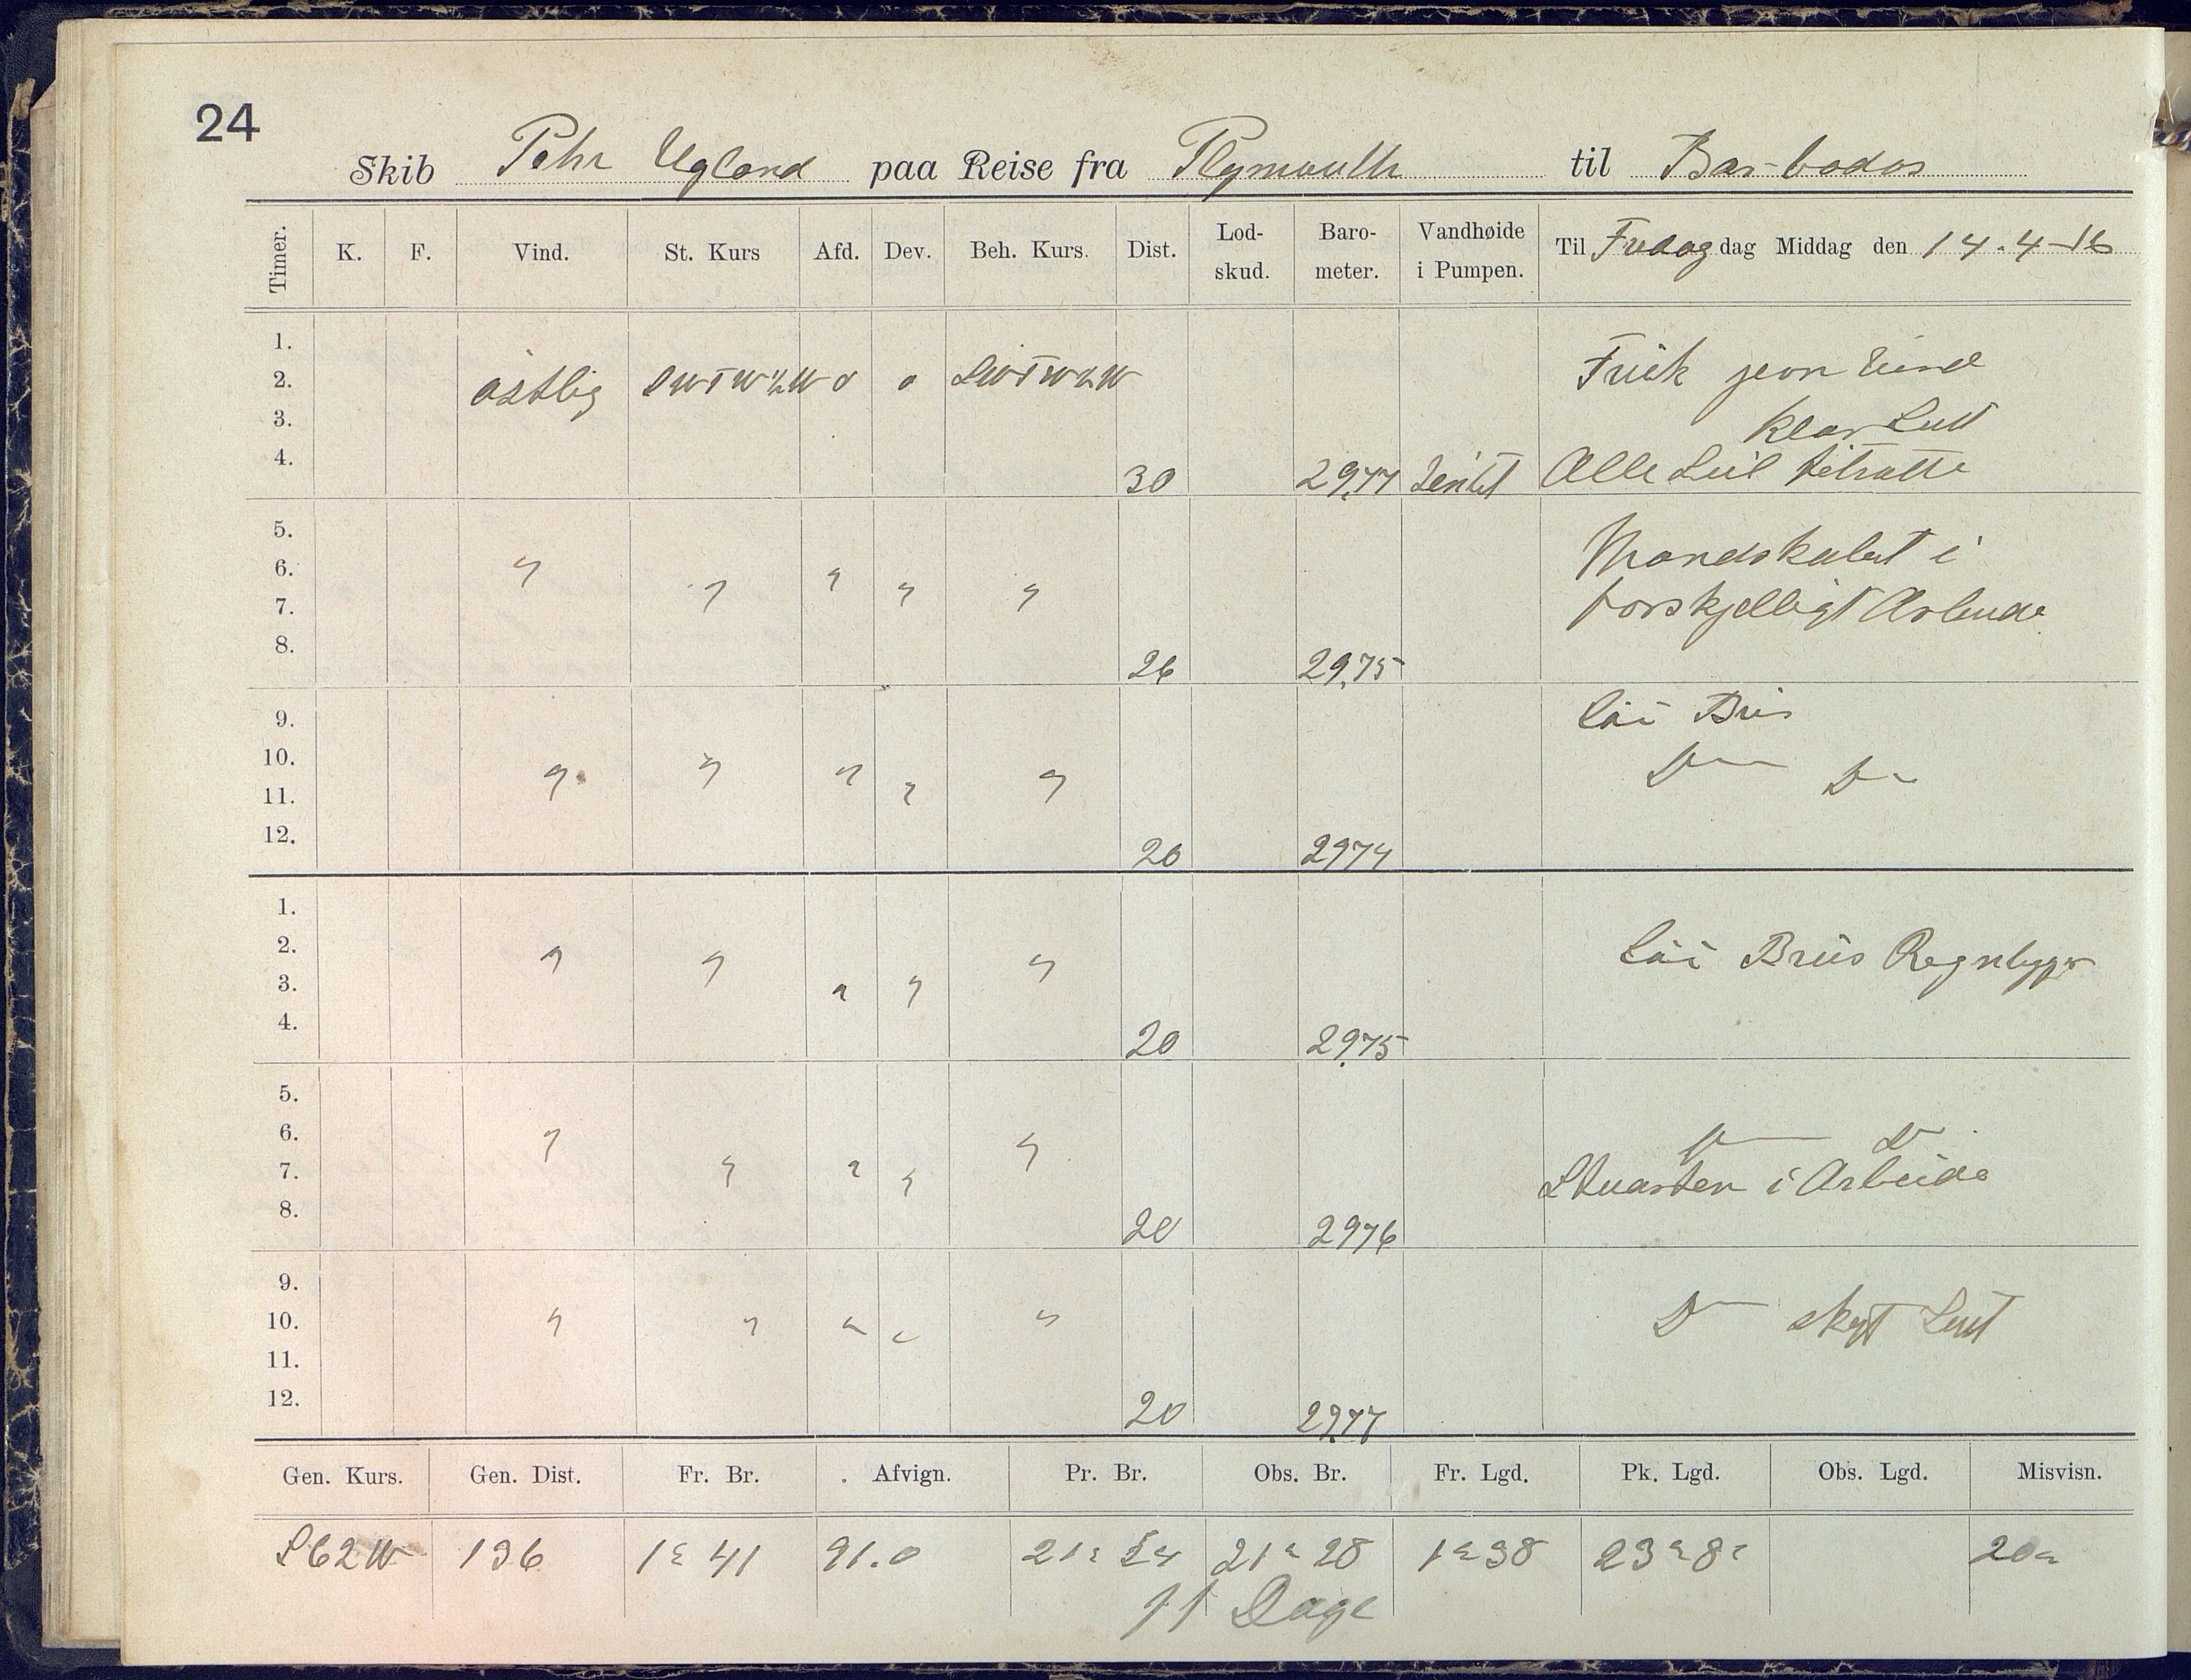 24
Skib Pehr Ugland paa Reise fra Plymouth til Barbados
Timer. K. F. Vind. St. Kurs Afd. Dev. Beh. Kurs. Dist. Lod-skud. Baro-meter. Vandhøide i Pumpen. Til Fredag dag Middag den 14.-4-16
1.
2. østlig SWTW½W 0 0 SWTW½W Frisk jevn Vind
3. klar Luft
4. 30 29,77 Lentst Alle Seil tilsatte
5. Mandskabet i
6. " " " " "
7. forskjelligt Arbeide
8. 26 29,75
9. Lai Bris
10. " " " " " D— D—
11.
12. 20 2974
1.
2. " " " " " Lai Briis Regnbyger
3.
4. 20 29,75
5.
6. " " " " " D— D—
7. Stuarten i Arbeide
8. 20 2976
9.
10. " " " " " D— skyt Luft
11.
12. 20 29,77
Gen. Kurs. Gen. Dist. Fr. Br. Afvign. Pr. Br. Obs. Br. Fr. Lgd. Pk. Lgd. Obs. Lgd. Misvisn.
S62W 136 1° 41 91.0 21° 54 21° 28 1° 38 23° 8' 20°
11 Dage